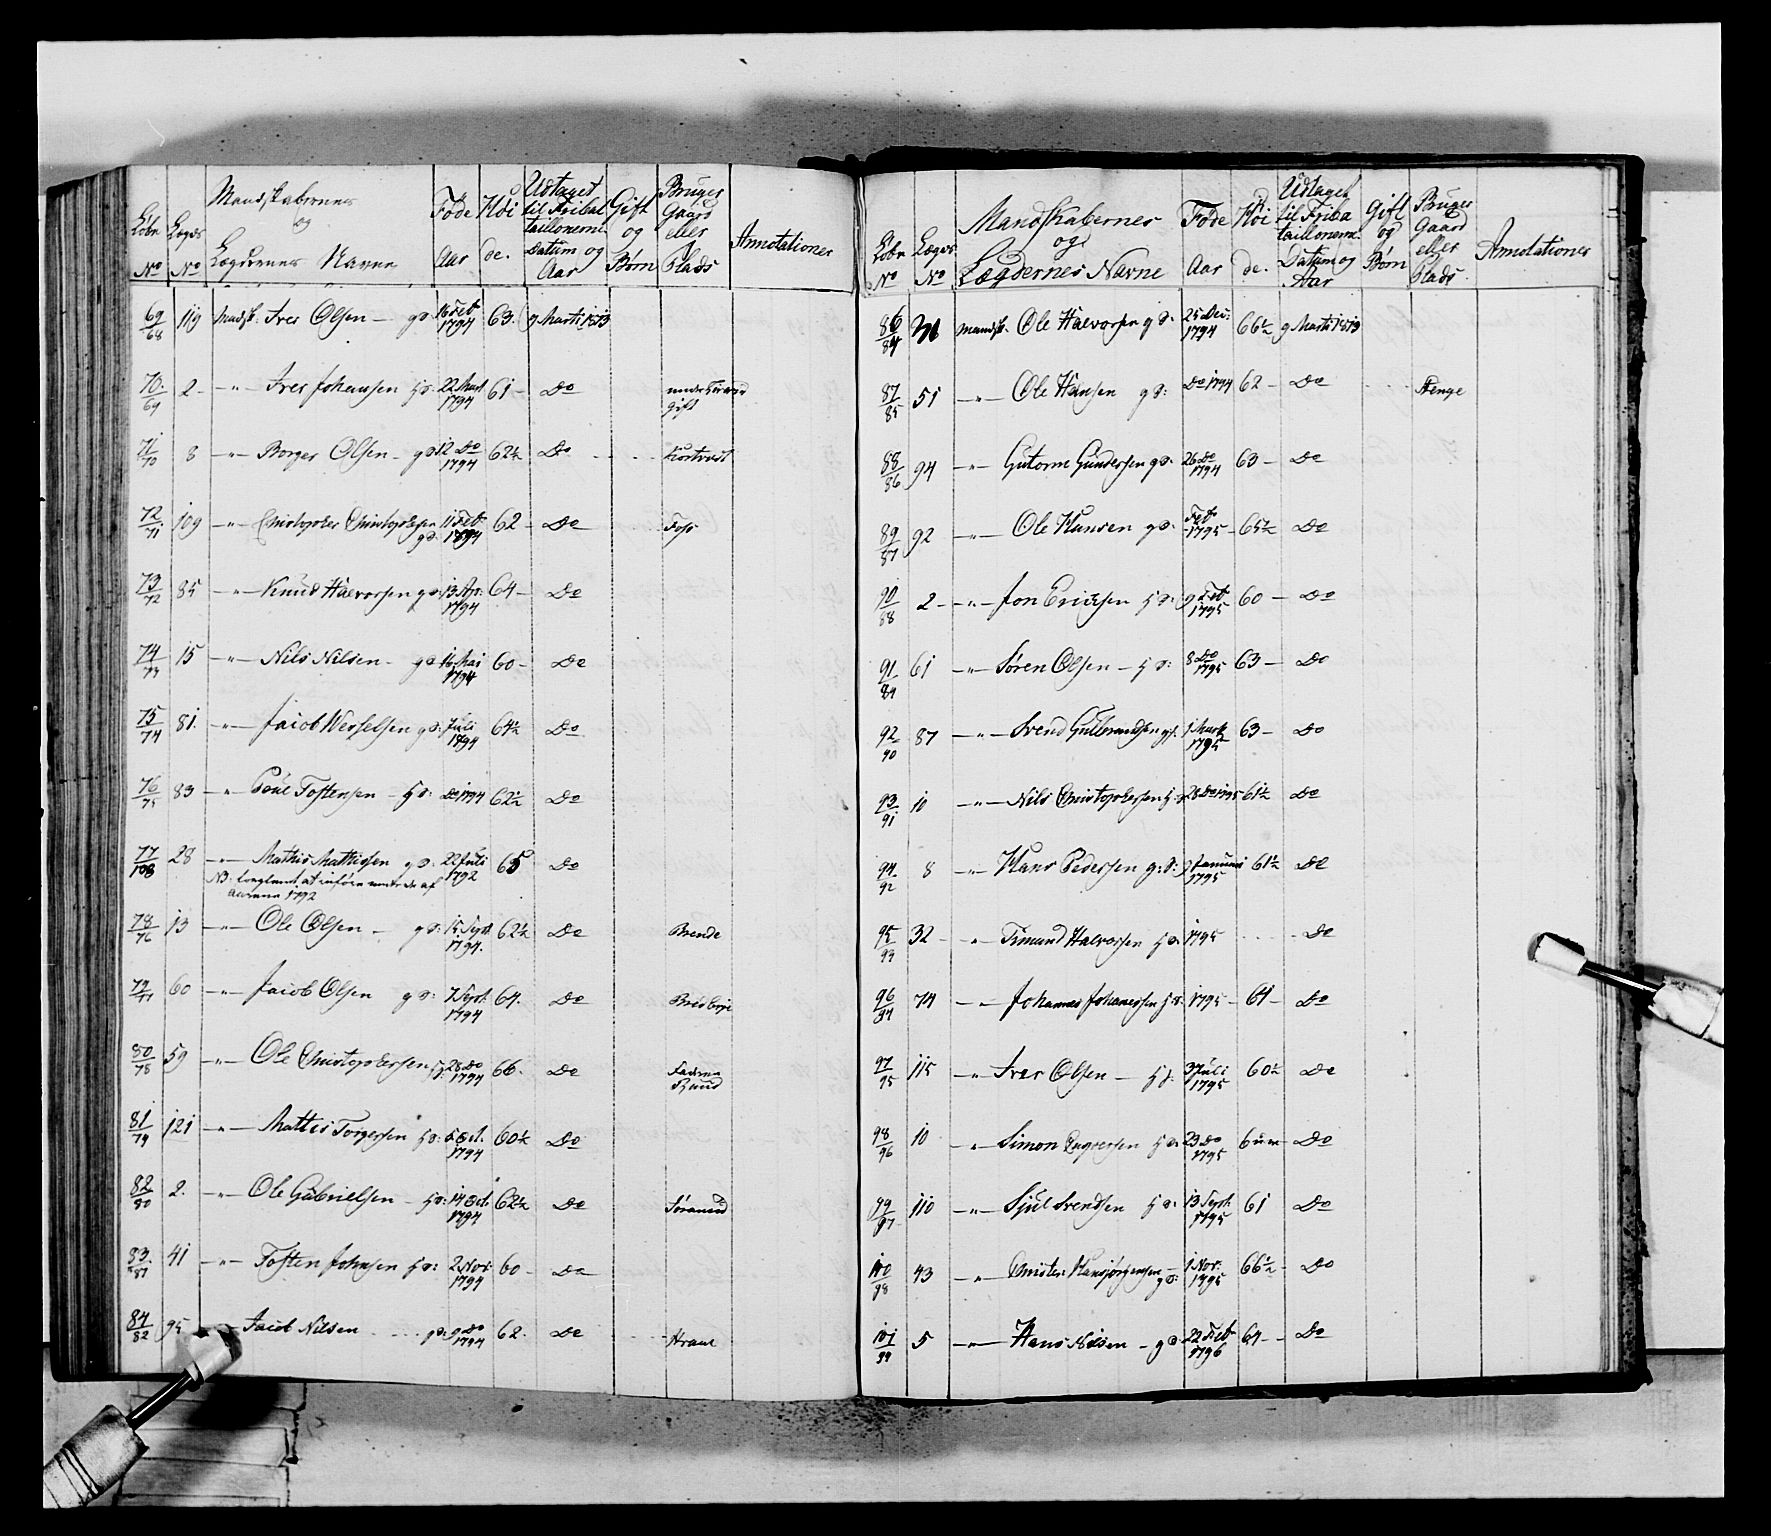 Løbe No
Lægds No
Mandskabernes og Lægdernes Navne
Føde Aar
Høide.
Udtaget til Fribataillonerne Datum og Aar
Gift og Børn
Bruger Gaard eller Plads
Annotationer
69/68 119 Mandsk: Iver Olsen — g S: 16 Feb 1794 63. 9 Marti 1813
70/69 2 - " - Iver Johansen h S: 22 Mart 1794 61 - Do
71/70 8 - " - Borger Olsen - g S: 12 Do 1794 62½ Do
72/71 109 - " - Christopher Christophersen g S: 11 Feb 1794 62 - Do Foss
73/72 85 - " - Knud Halvorsen g S: 13 Apr: 1794 64 - Do
74/73 15 - " - Nils Nilsen - g S 16 Mai 1794 60 - Do
75/74 81 - " - Jacob Wesselsen g S: Juli 1794 64½ Do
76/75 83 - " - Poul Tostensen - h S: Do 1794 62½ Do
77/108 28 - " - Mathis Mathisen g S: 22 Juli 1792 65 Do
NB: forglemt at indføre
Aarene 1792
78/76 13 - " - Ole Olsen - g S: 15 Sept 1794. 62½ Do Brende
79/77 60 - " - Jacob Olsen g S: 7 Sept. 1794 64. Do
80/78 59 - " - Ole Christophersen 28 Do 1794 66. Do
81/79 121 - " - Mattis Torgersen h S: 5 Oct. 1794 60½ Do
82/80 2. - " - Ole Gabrielsen - h S: 14 Oct. 1794 62½ Do
83/81 41 - " - Tosten Johnsen h S: 2 Nov: 1794 60 - Do
84/82 95 Jacob Nilsen g S: 9 Do 1794 62. Do
Løbe No
Lægds No
Mandskabernes og Lægdernes Navne
Føde Aar
Høide.
Udtaget til Fribataillonerne Datum og Aar
Gift og Børn
Bruger Gaard eller Plads
Annotationer
86/84 Mandsk. Ole Halvorsen g S. 25 Dec: 1794 66½ 9 Marti 1813
87/85 51 - " - Ole Hansen g S: Do 1794 62 - Do Stenge
88/86 94 - " - Gutorm Gundersen g S. 26 Do 1794 63 - Do
89/87 92 - " - Ole Hansen g S: Feb 1795 - 65½ Do
90/88 2 - " - Jon Ericksen h S: 9 Feb 1795 60 - Do
91/89 61 - " - Søren Olsen - h S: 8 Do 1795 63 - Do
92/90 87 - " - Svend Gulbrandsen 1 Mart 1795 63 - Do
93/91 10 - " - Nils Christophersen h S 28 Do 1795 61½ Do
94/92 8 - " - Hans Pedersen g: S: 9 Januari 1795 61½ Do
95/93 32 - " - Simund Halvorsen h S: 1795 Do
96/94 74 - " - Johannes Johanessen h S. 1795 - 61 - Do
97/95 115 - " - Iver Olsen - h S. 3 Juli 1795 60½ Do
98/96 10 - " - Simon h S: 23 Do 1795 Do
99/97 110 - " - Sjul Svendsen h S: 13 Sept: 1795 61 Do
100/98 43 - " - Christ: Hansjørgensen - g S: 1 Nov: 1795 66½ - Do
101/99 5 - " - Hans Nilsen - g S 22 Feb 1796 64 - Do